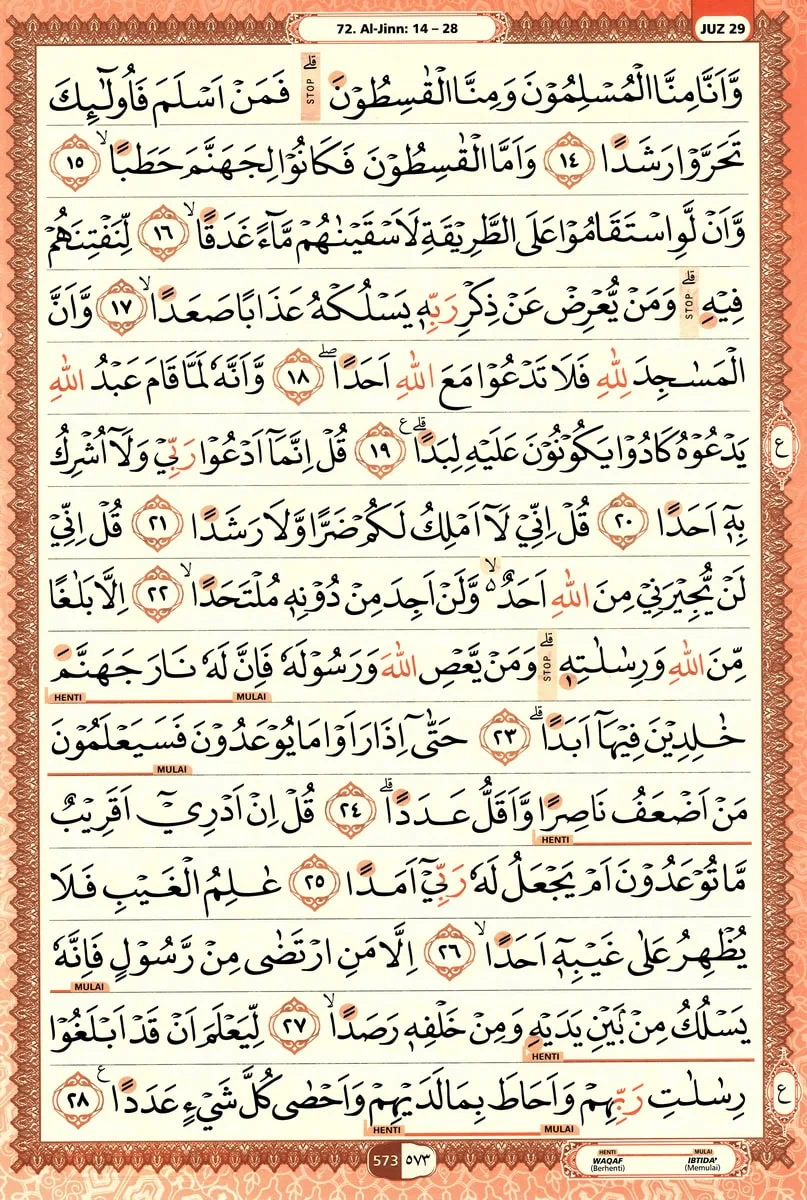 72. Al-Jinn: 14 – 28
JUZ 29
وَّاَنَّا مِنَّا الْمُسْلِمُوْنَ وَمِنَّا الْقٰسِطُوْنَ ۗ STOP فَمَنْ اَسْلَمَ فَاُولٰۤىِٕكَ
تَحَرَّوْا رَشَدًا ١٤ وَاَمَّا الْقٰسِطُوْنَ فَكَانُوْا لِجَهَنَّمَ حَطَبًاۙ ١٥
وَّاَنْ لَّوِ اسْتَقَامُوْا عَلَى الطَّرِيْقَةِ لَاَسْقَيْنٰهُمْ مَّاۤءً غَدَقًاۙ ١٦ لِّنَفْتِنَهُمْ
فِيْهِۗ STOP وَمَنْ يُّعْرِضْ عَنْ ذِكْرِ رَبِّهٖ يَسْلُكْهُ عَذَابًا صَعَدًاۙ ١٧ وَّاَنَّ
الْمَسٰجِدَ لِلّٰهِ فَلَا تَدْعُوْا مَعَ اللّٰهِ اَحَدًاۖ ١٨ وَّاَنَّهٗ لَمَّا قَامَ عَبْدُ اللّٰهِ
يَدْعُوْهُ كَادُوْا يَكُوْنُوْنَ عَلَيْهِ لِبَدًاۗ ع ١٩ قُلْ اِنَّمَآ اَدْعُوْا رَبِّيْ وَلَآ اُشْرِكُ
ع
بِهٖٓ اَحَدًا ٢٠ قُلْ اِنِّيْ لَآ اَمْلِكُ لَكُمْ ضَرًّا وَّلَا رَشَدًا ٢١ قُلْ اِنِّيْ
لَنْ يُّجِيْرَنِيْ مِنَ اللّٰهِ اَحَدٌ ەۙ وَّلَنْ اَجِدَ مِنْ دُوْنِهٖ مُلْتَحَدًاۙ ٢٢ اِلَّا بَلٰغًا
مِّنَ اللّٰهِ وَرِسٰلٰتِهٖۗ STOP وَمَنْ يَّعْصِ اللّٰهَ وَرَسُوْلَهٗ فَاِنَّ لَهٗ نَارَ جَهَنَّمَ
MULAI HENTI
خٰلِدِيْنَ فِيْهَآ اَبَدًاۗ ٢٣ حَتّٰىٓ اِذَا رَاَوْا مَا يُوْعَدُوْنَ فَسَيَعْلَمُوْنَ
MULAI
مَنْ اَضْعَفُ نَاصِرًا وَّاَقَلُّ عَدَدًاۗ ٢٤ قُلْ اِنْ اَدْرِيْٓ اَقَرِيْبٌ
HENTI
مَّا تُوْعَدُوْنَ اَمْ يَجْعَلُ لَهٗ رَبِّيْٓ اَمَدًا ٢٥ عٰلِمُ الْغَيْبِ فَلَا
يُظْهِرُ عَلٰى غَيْبِهٖٓ اَحَدًاۙ ٢٦ اِلَّا مَنِ ارْتَضٰى مِنْ رَّسُوْلٍ فَاِنَّهٗ
MULAI
يَسْلُكُ مِنْۢ بَيْنِ يَدَيْهِ وَمِنْ خَلْفِهٖ رَصَدًاۙ ٢٧ لِّيَعْلَمَ اَنْ قَدْ اَبْلَغُوْا
HENTI
رِسٰلٰتِ رَبِّهِمْ وَاَحَاطَ بِمَا لَدَيْهِمْ وَاَحْصٰى كُلَّ شَيْءٍ عَدَدًا ع ٢٨
ع
MULAI HENTI
573 ٥٧٣
HENTI MULAI
WAQAF IBTIDA'
(Berhenti) (Memulai)